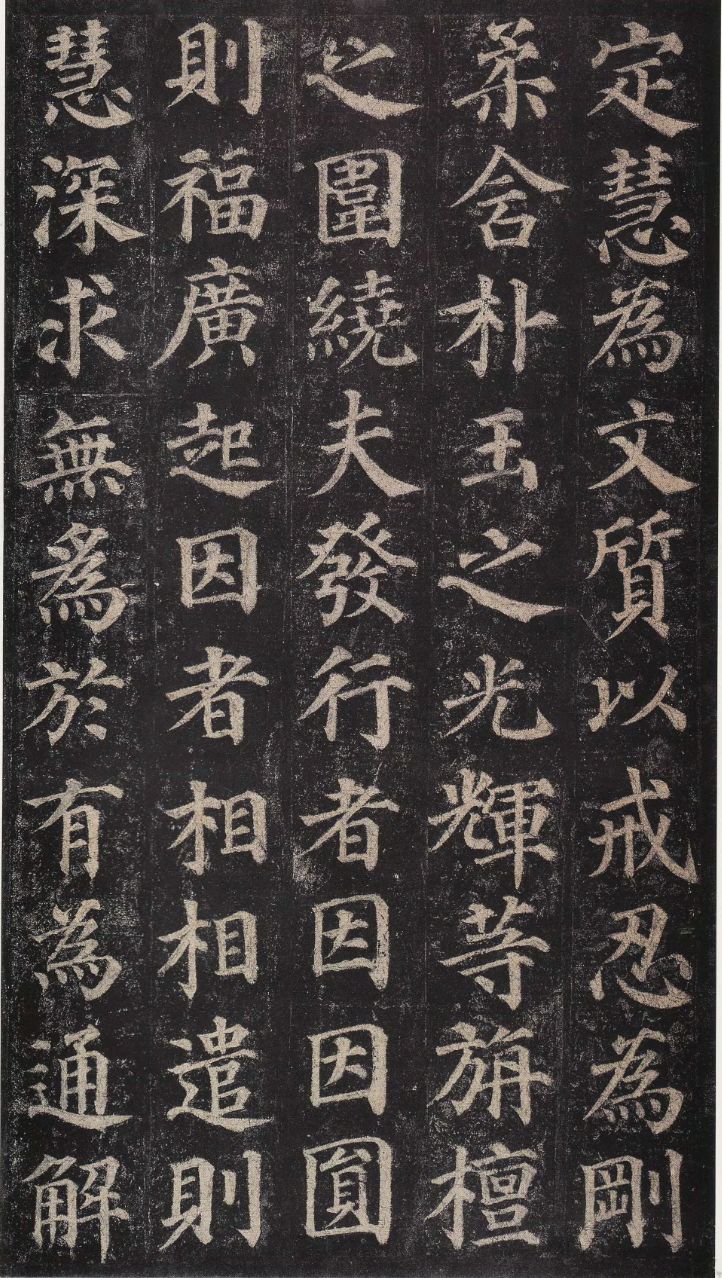 定慧為文質以戒忍為剛
柔含朴玉之光輝等旃檀
之圍繞夫發行者因因圎
則福廣起因者相相遣則
慧深求無為於有為通解